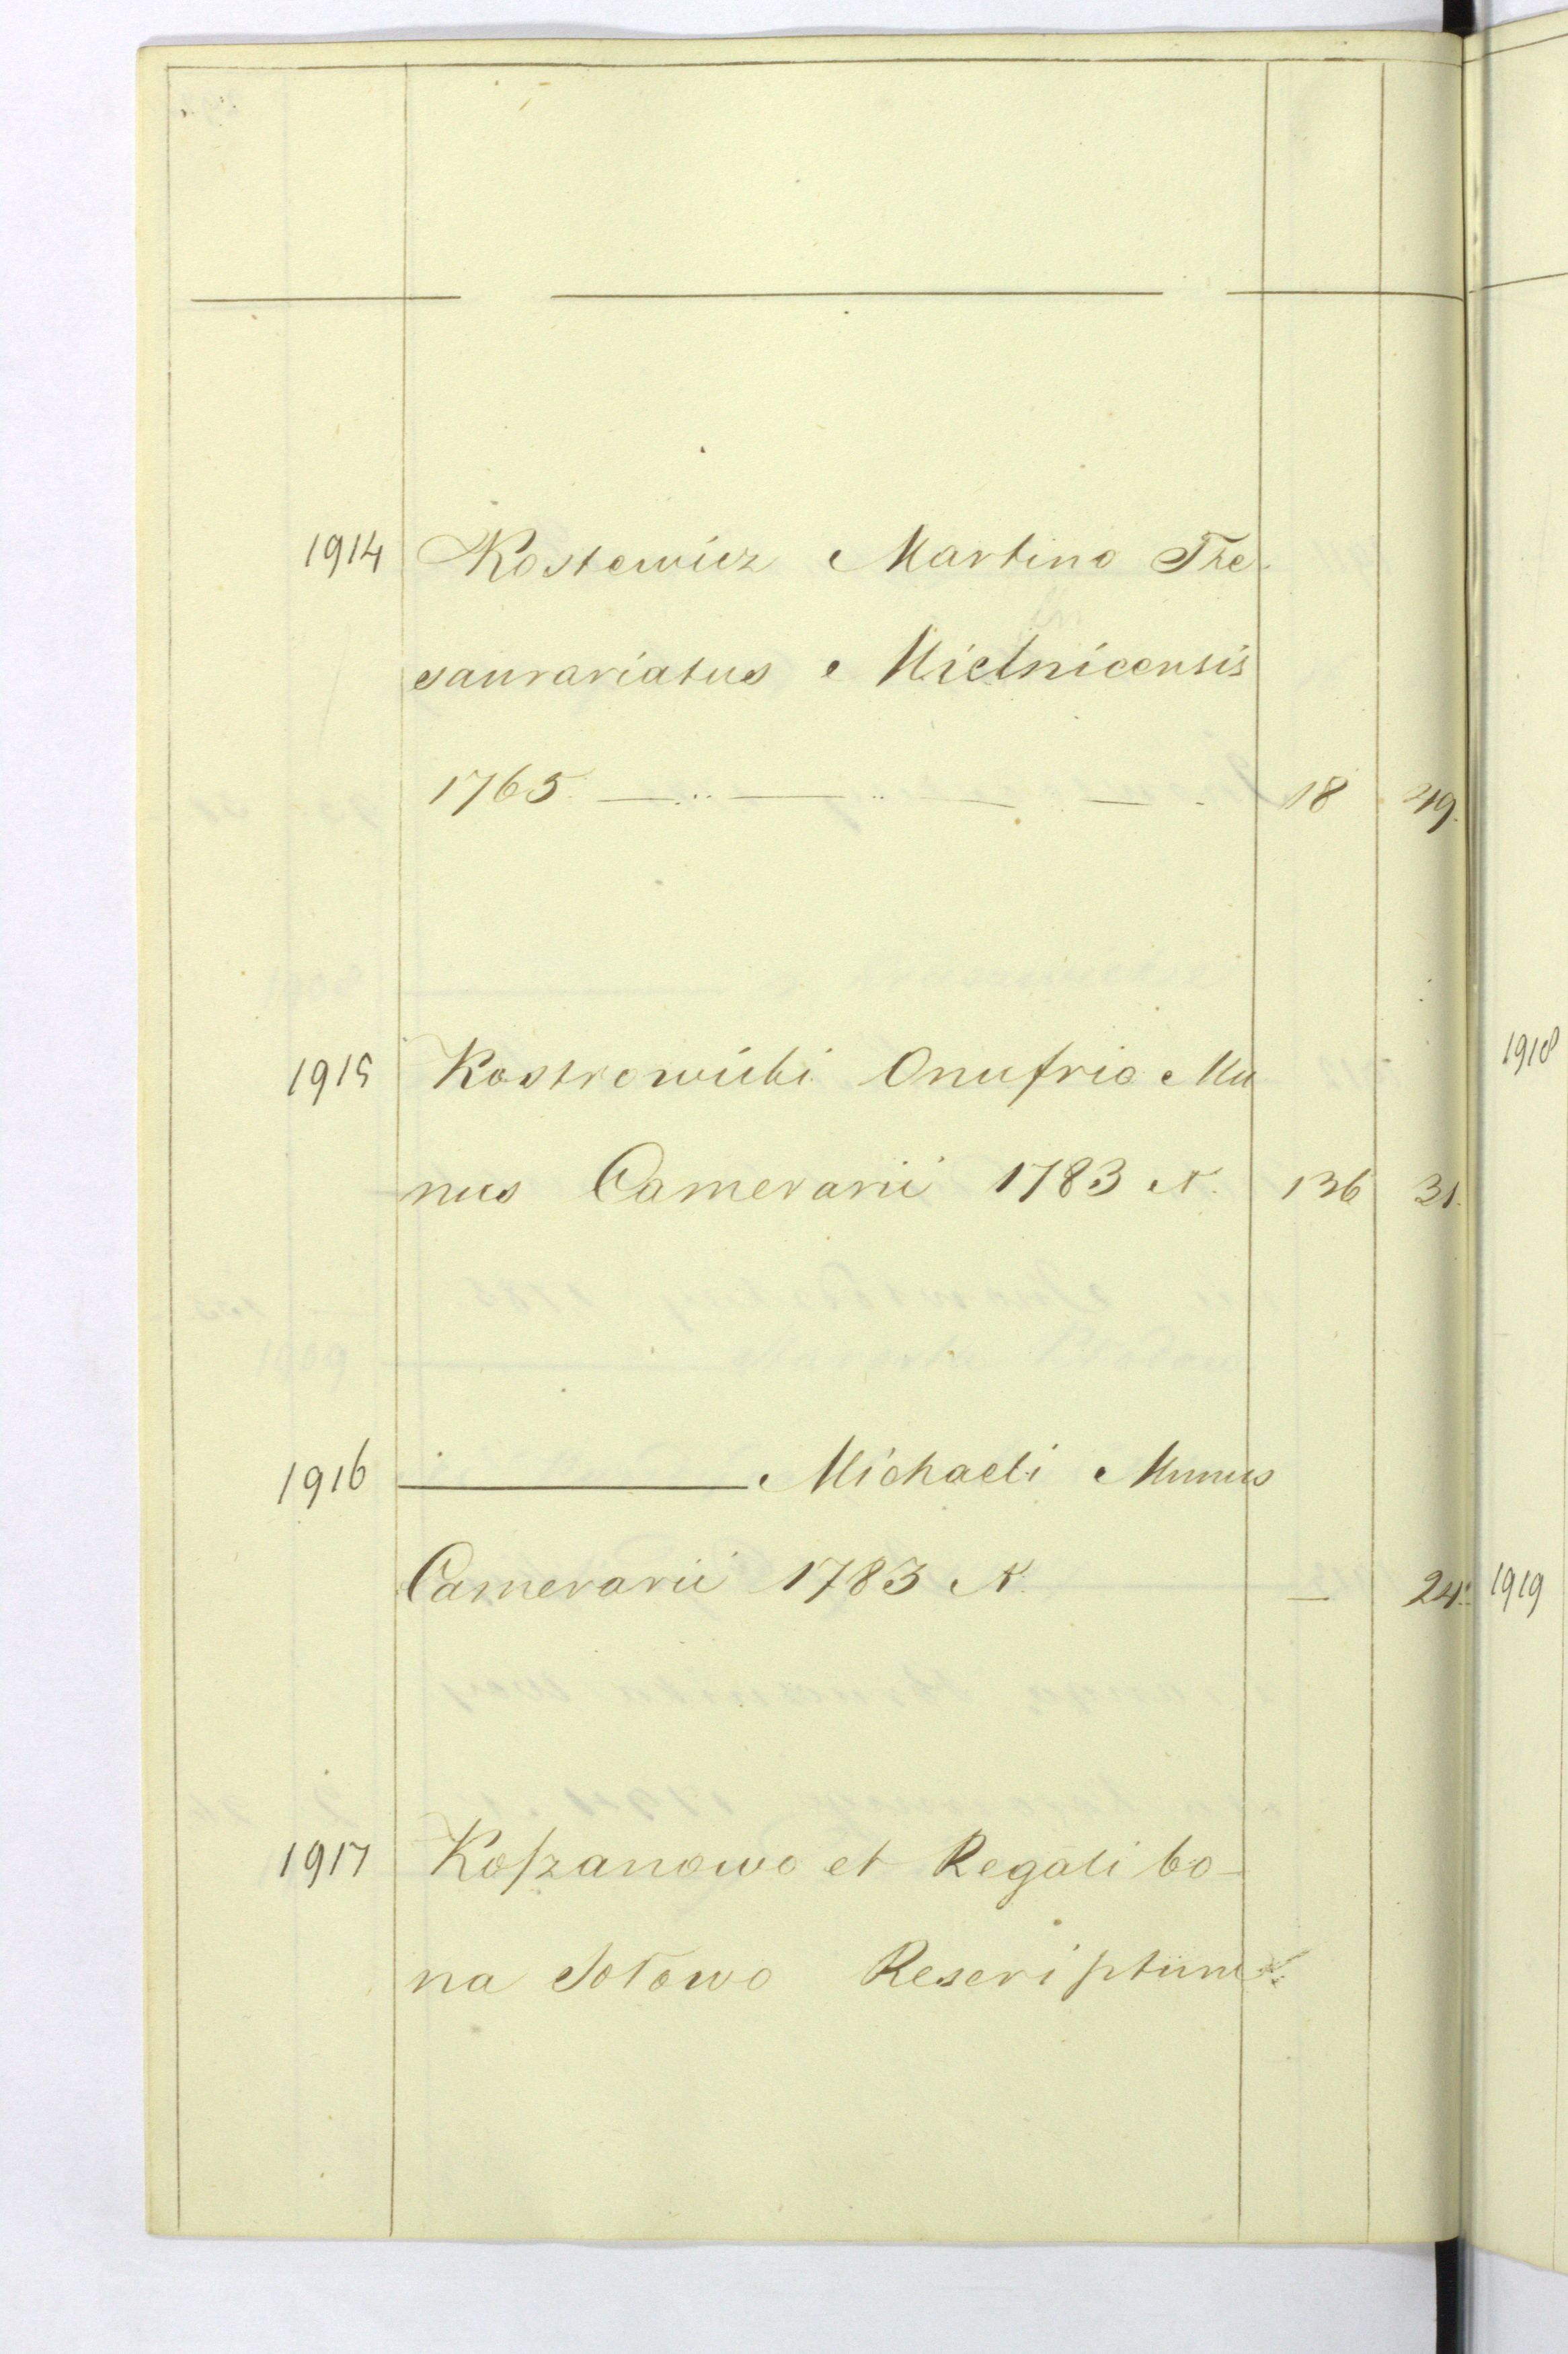 1914 Kostewicz Martino The-
saurariatus Mielnicensis
1765. — .. — .. — — - 18 49.
1915 Kostrowicki Onufrio Mu
nus Camerarii 1783 N. 136 31.
1916 ——— Michaeli Munus
Camerarii 1783 N. — 24.
1917 Koſzanowo et Regali bo-
na Sotowo Rescriptum
1918
1919